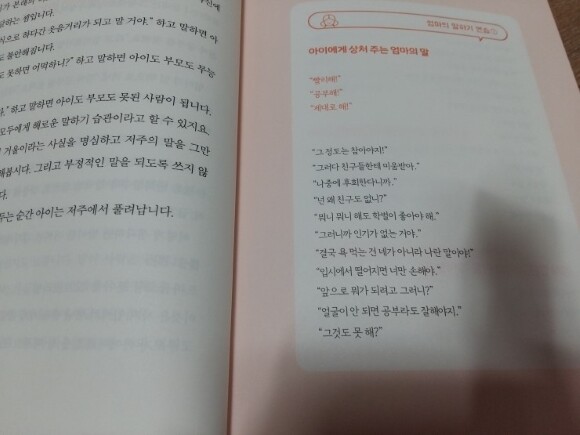 하는 셈입니다.
식으로 하다간 웃음거리가 되고 말 거야." 하고 말하면 아
도 불안해집니다.
도 못하면 어떡하니?" 하고 말하면 아이도 부모도 무능
다." 하고 말하면 아이도 부모도 못된 사람이 됩니다.
모두에게 해로운 말하기 습관이라고 할 수 있지요.
거울이라는 사실을 명심하고 저주의 말을 그만
해봅시다. 그리고 부정적인 말을 되도록 쓰지 않
다.
두는 순간 아이는 저주에서 풀려납니다.
엄마의 말하기 연습
아이에게 상처 주는 엄마의 말
"빨리해!"
"공부해!"
"제대로 해!"
"그 정도는 참아야지!"
"그러다 친구들한테 미움받아."
"나중에 후회한다니까."
"넌 왜 친구도 없니?"
"뭐니 뭐니 해도 학벌이 좋아야 해."
"그러니까 인기가 없는 거야."
"결국 욕 먹는 건 네가 아니라 나란 말이야!"
"입시에서 떨어지면 너만 손해야."
"앞으로 뭐가 되려고 그러니?"
"얼굴이 안 되면 공부라도 잘해야지."
"그것도 못 해?"